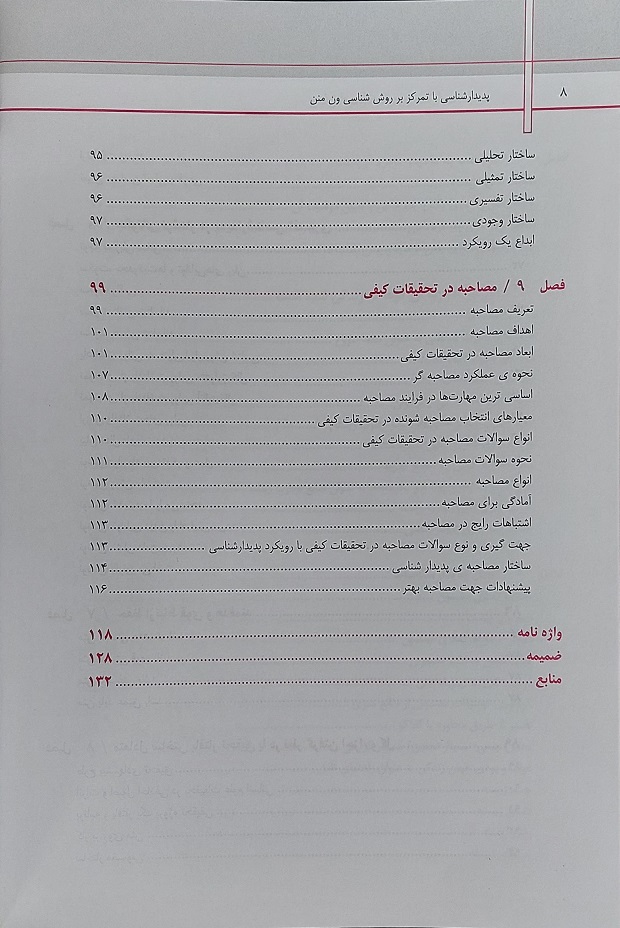 ۸ پدیدارشناسی با تمرکز بر روش شناسی ون منن
ساختار تحلیلی ........ ۹۵
ساختار تمثیلی ........ ۹۶
ساختار تفسیری ........ ۹۶
ساختار وجودی ........ ۹۷
ابداع یک رویکرد ........ ۹۷
فصل ۹ / مصاحبه در تحقیقات کیفی ........ ۹۹
تعریف مصاحبه ........ ۹۹
اهداف مصاحبه ........ ۱۰۱
ابعاد مصاحبه در تحقیقات کیفی ........ ۱۰۱
نحوه ی عملکرد مصاحبه گر ........ ۱۰۷
اساسی ترین مهارت‌ها در فرایند مصاحبه ........ ۱۰۸
معیارهای انتخاب مصاحبه شونده در تحقیقات کیفی ........ ۱۱۰
انواع سوالات مصاحبه در تحقیقات کیفی ........ ۱۱۰
نحوه سوالات مصاحبه ........ ۱۱۱
انواع مصاحبه ........ ۱۱۲
آمادگی برای مصاحبه ........ ۱۱۲
اشتباهات رایج در مصاحبه ........ ۱۱۳
جهت گیری و نوع سوالات مصاحبه در تحقیقات کیفی با رویکرد پدیدارشناسی ........ ۱۱۳
ساختار مصاحبه ی پدیدار شناسی ........ ۱۱۴
پیشنهادات جهت مصاحبه بهتر ........ ۱۱۶
واژه نامه ........ ۱۱۸
ضمیمه ........ ۱۲۸
منابع ........ ۱۳۲